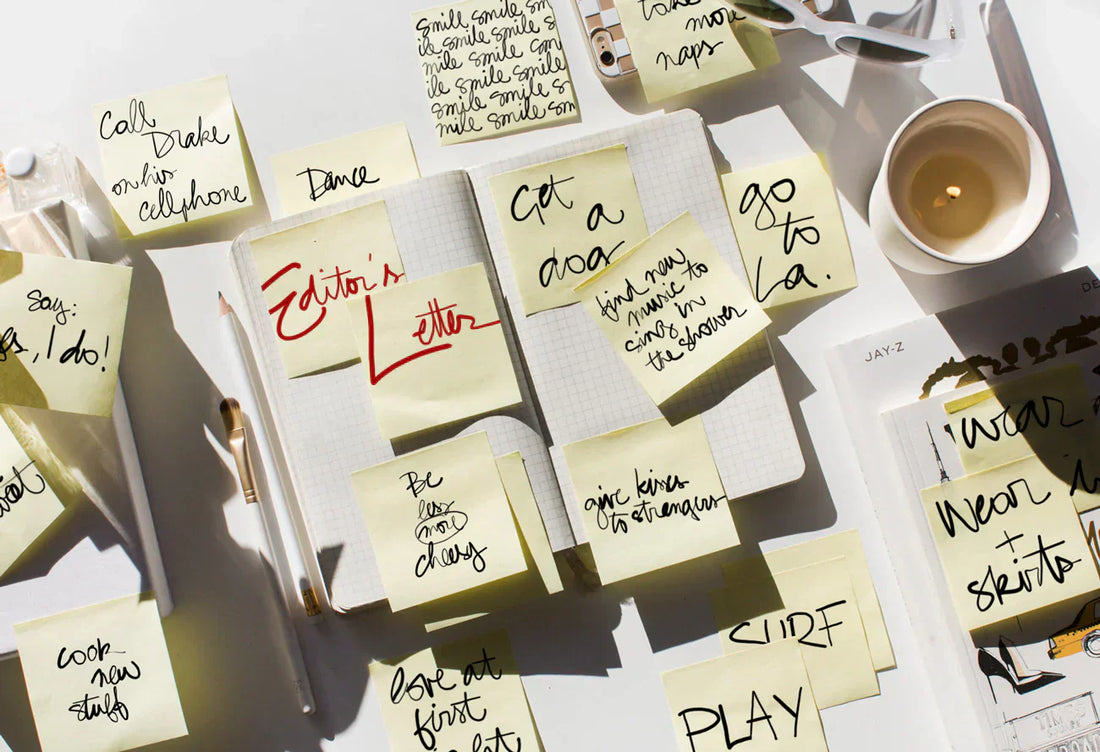 smile smile sm
ile smile smile
mile smile sm
ile smile smile
smile smile sm
mile smile sm
take
more
naps
Call
Drake
on his
cellphone
Dance
Get
a
dog
go
to
La.
Editor's
Letter
find new
music to
sing in
the shower
Say:
I do!
JAY-Z
DE
wear
Wear
+
skirts
Be
less
more
cheesy
give kisses
to strangers
cook
new
stuff
SURF
love at
first
PLAY